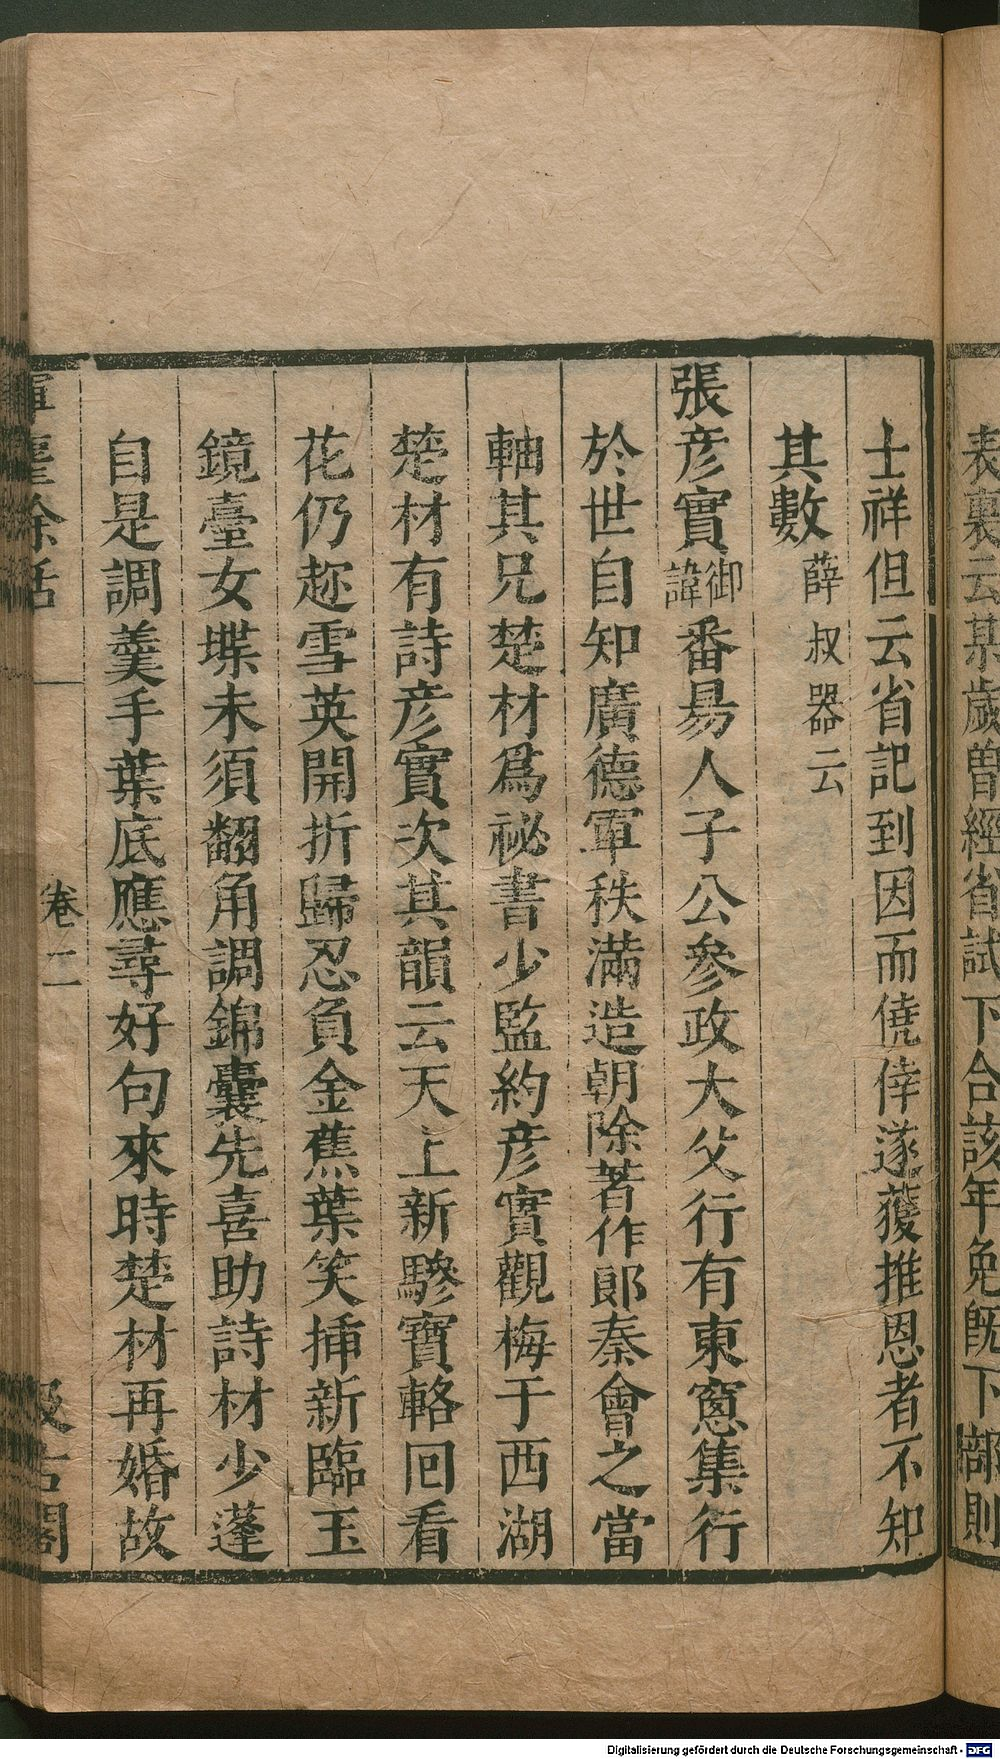 表裏云某歲曾經省試下合該年免旣下部則
士祥但云省記到因而僥倖遂獲推恩者不知
其數薛叔器云
張彦實御諱番昜人子公參政大父行有東窻集行
於世自知廣德軍秩滿造朝除著作郞秦會之當
軸其兄楚材爲祕書少監約彦實觀梅于西湖
楚材有詩彦實次其韻云天上新驂寶輅回看
花仍趂雪英開折歸忍負金蕉葉笑揷新臨玉
鏡臺女堞未須翻角調錦囊先喜助詩材少蓬
自是調羹手葉底應尋好句來時楚材再婚故
卷二
汲古閣
Digitalisierung gefördert durch die Deutsche Forschungsgemeinschaft - DFG